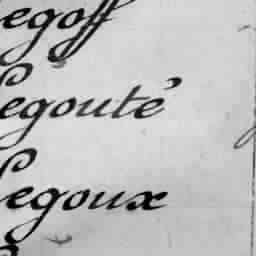 egoff
Legouté
Legoux